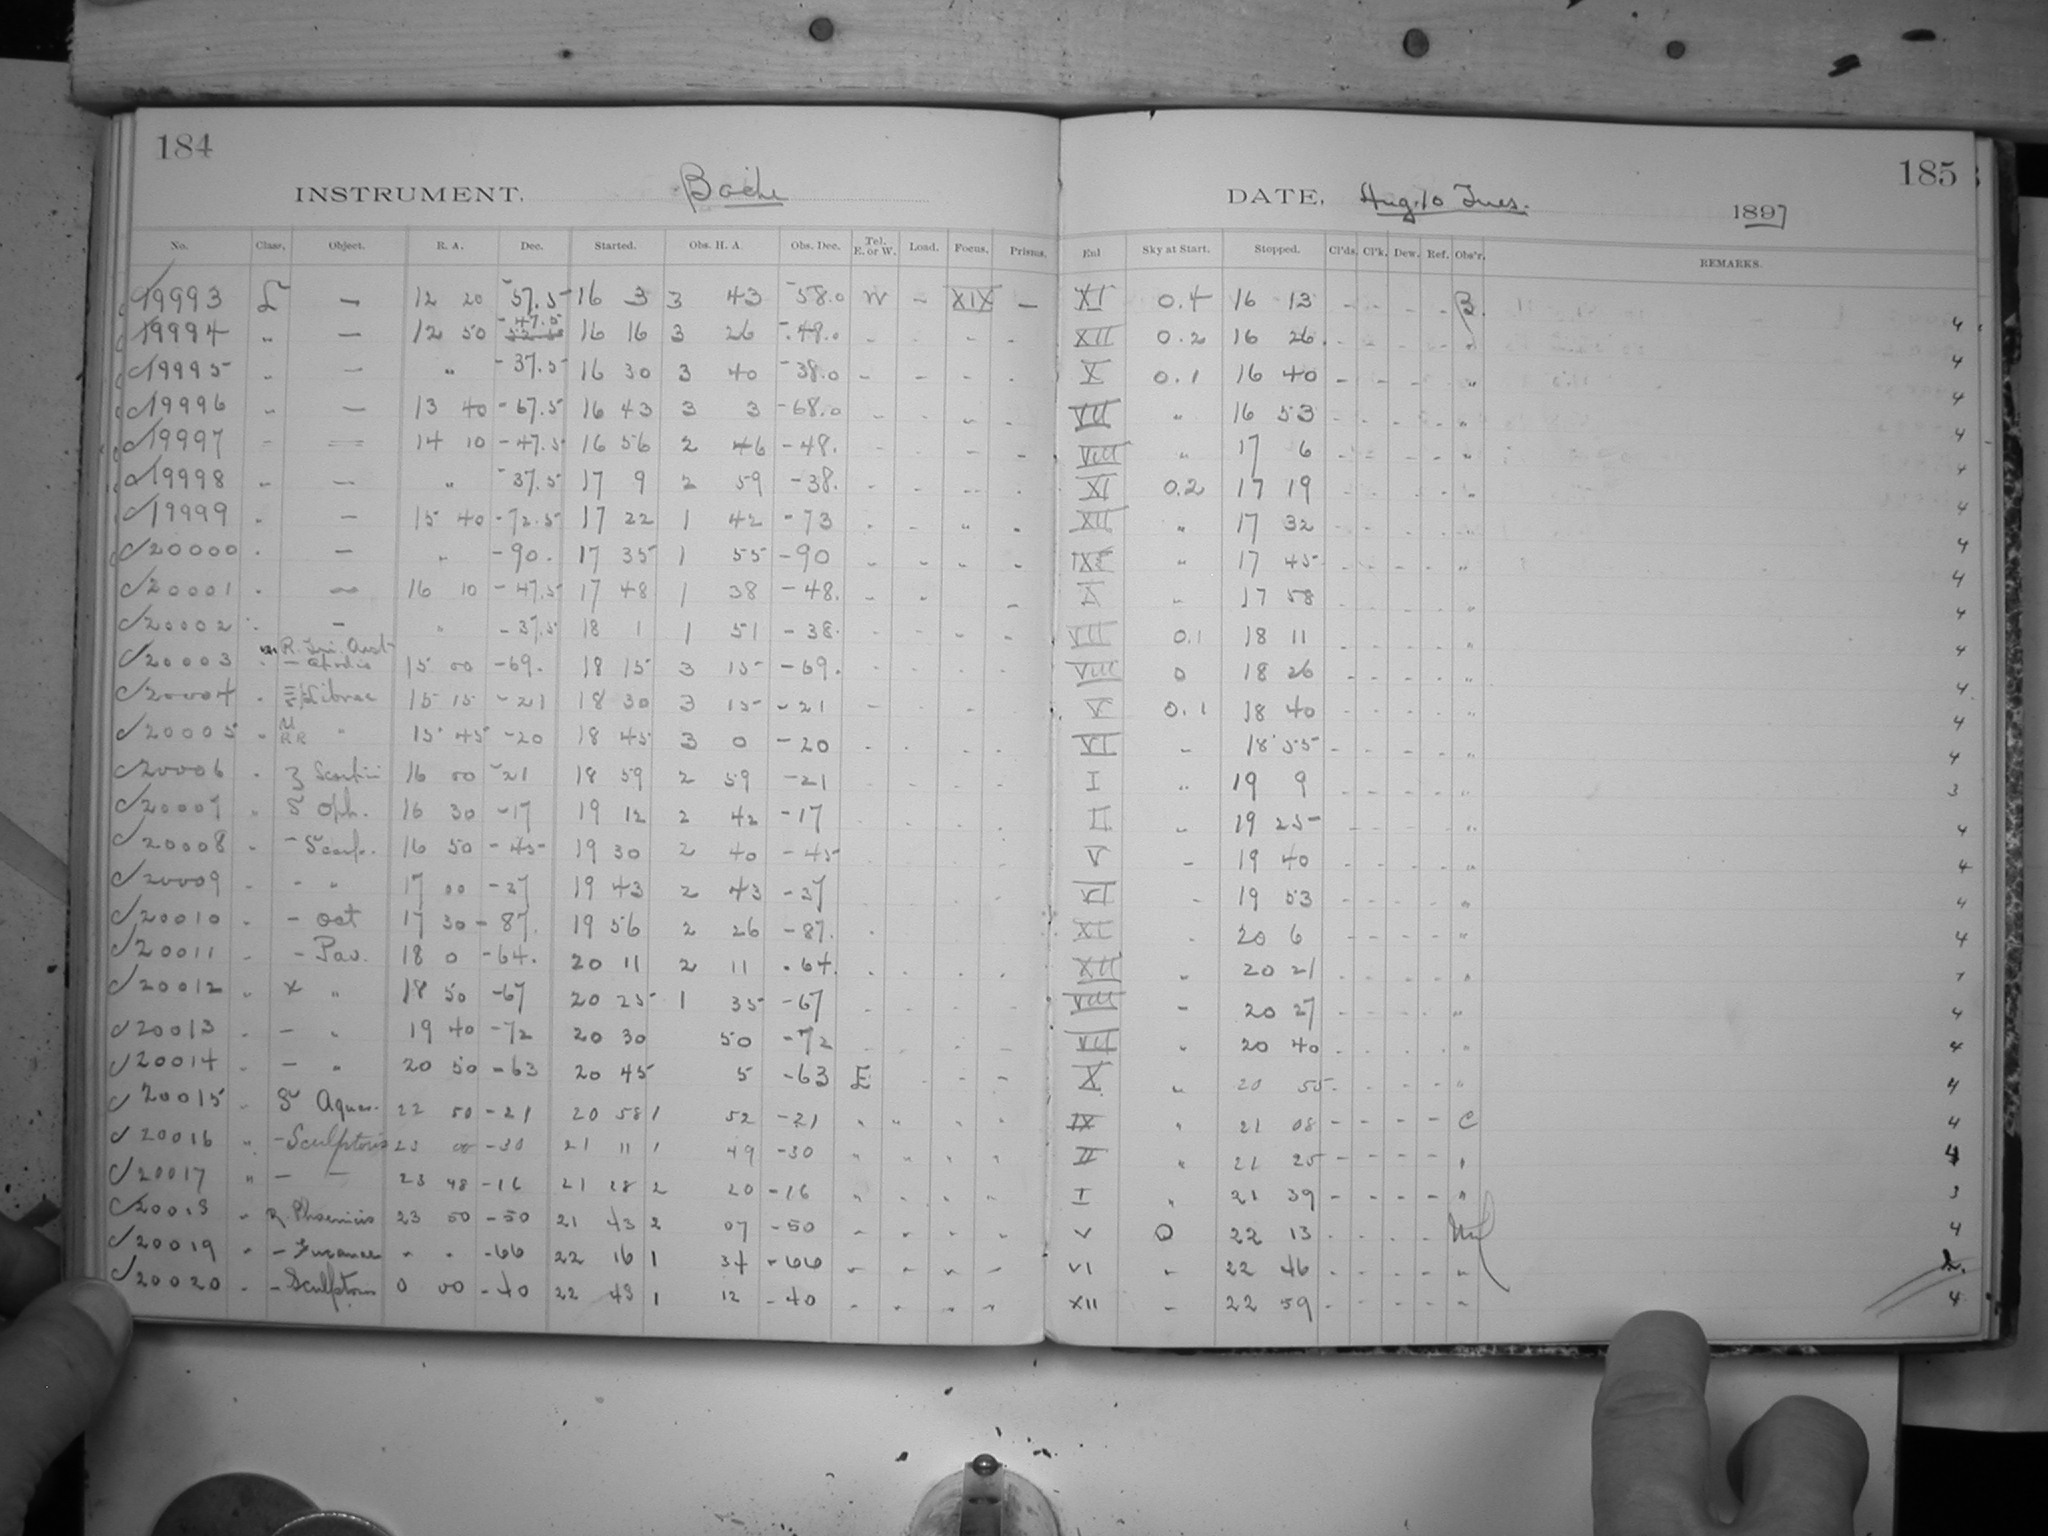 184
INSTRUMENT. Bache
No. Class. Object. R. A. Dec. Started. Obs. H. A. Obs. Dec. Tel. E. or W. Load. Focus. Prisms.
19993 L — 12 20 -57.5 16 3 3 43 -58.0 W - XIX —
19994 " — 12 50 -47.5 16 16 3 26 -48.0 - - - -
19995 " — " -37.5 16 30 3 40 -38.0 - - - -
19996 " — 13 40 -67.5 16 43 3 3 -68.0 - - " -
19997 " — 14 10 -47.5 16 56 2 46 -48. - - - -
19998 " — " -37.5 17 9 2 59 -38. - - - -
19999 " — 15 40 -72.5 17 22 1 42 -73 - - " "
20000 " — " -90. 17 35 1 55 -90 " " " "
20001 " — 16 10 -47.5 17 48 1 38 -48. - " -
20002 " — " -37.5 18 1 1 51 -38. - - - -
R. Tri. Aust
20003 " — Apodis 15 00 -69. 18 15 3 15 -69. - - - -
20004 " Librae 15 15 -21 18 30 3 15 -21 - - - -
20005 " U RR " 15 45 -20 18 45 3 0 -20 - - - -
20006 " Z Scorpii 16 00 -21 18 59 2 59 -21 - - - -
20007 " S Oph. 16 30 -17 19 12 2 42 -17 - - - -
20008 " — Scorp. 16 50 -45 19 30 2 40 -45
20009 " - " 17 00 -37 19 43 2 43 -37
20010 " — Oct 17 30 -87. 19 56 2 26 -87. -
20011 " — Pav. 18 0 -64. 20 11 2 11 -64. - - - -
20012 " X " 18 50 -67 20 25 1 35 -67 - - - -
20013 " — " 19 40 -72 20 30 50 -72 - - - -
20014 " — " 20 50 -63 20 45 5 -63 E - - -
20015 " S Aquar. 22 50 -21 20 58 1 52 -21 " " " "
20016 " — Sculptoris 23 00 -30 21 11 1 49 -30 " " " "
20017 " — — 23 48 -16 21 28 2 20 -16 " " " "
20018 " R. Phoenicis 23 50 -50 21 43 2 07 -50 " " " "
20019 " — Tucanae " " -66 22 16 1 34 -66 " " " "
20020 " — Sculptoris 0 00 -40 22 43 1 12 -40 " " " "
185
DATE, Aug. 10 Tues. 1897
Enl Sky at Start. Stopped. Cl'ds. Cl'k. Dew. Ref. Obs'r. REMARKS.
XI 0.4 16 13 - - - - B. 4
XII 0.2 16 26. - - - - " 4
X 0.1 16 40 - - - - " 4
VII " 16 53 - - - - " 4
VIII " 17 6 - - - - " 4
XI 0.2 17 19 - - - - " 4
XII " 17 32 - - - - " 4
IX " 17 45 - - - - " 4
X " 17 58 - - - - " 4
VII 0.1 18 11 - - - - " 4
VIII 0 18 26 - - - - " 4
V 0.1 18 40 - - - - " 4
VI " 18 55 - - - - " 4
I " 19 9 - - - - " 3
II " 19 25 - - - - " 4
V " 19 40 - - - - " 4
VI " 19 53 - - - - " 4
XI " 20 6 - - - - " 4
XII " 20 21 - - - - "
VIII " 20 27 - - - - " 4
VII " 20 40 - - - - " 4
X " 20 55 - - - - " 4
IX " 21 08 - - - - C 4
II " 21 25 - - - - " 4
I " 21 39 - - - - " 3
V 0 22 13 - - - - 4
VI " 22 46 - - - - " 2.
XII " 22 59 - - - - " 4